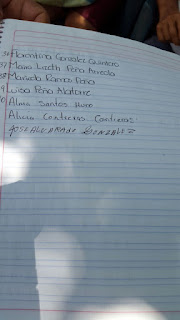 36 Florentina Gonzalez Quintero
37 Maria Lucila Peña Arreola
38 Marisela Ramos Peña
9 Luisa Peña Alatorre
0 Alma Santos Hugo
Alicia Contreras Contreras.
JOSE ALVARADO GONZALEZ